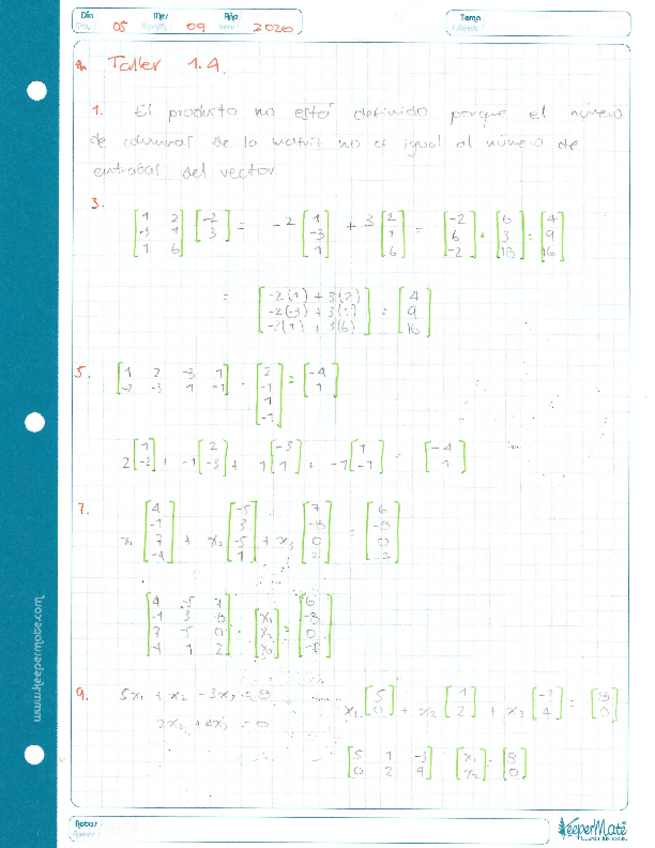 Día Mes Año Tema
Day 05 Month 09 Year 2020 Subject
Taller 1.4.
1. El producto no está definido porque el número
de columnas de la matriz no es igual al número de
entradas del vector.
3.
[1 2; -3 1; 1 6] [-2; 3] = -2 [1; -3; 1] + 3 [2; 1; 6] = [-2; 6; -2] + [6; 3; 18] = [4; 9; 16]
= [-2(1) + 3(2); -2(-3) + 3(1); -2(1) + 3(6)] = [4; 9; 16]
5. [1 2 -3 1; -2 -3 1 -1] · [2; -1; 1; -1] = [-4; 1]
2 [1; -2] + -1 [2; -3] + 1 [-3; 1] + -1 [1; -1] = [-4; 1]
7.
x₁ [4; -1; 7; -4] + x₂ [-5; 3; -5; 1] + x₃ [7; -8; 0; 2] = [6; -8; 0; -7]
[4 -5 7; -1 3 -8; 7 -5 0; -4 1 2] · [x₁; x₂; x₃] = [6; -8; 0; -7]
9. 5x₁ + x₂ - 3x₃ = 8 x₁ [5; 0] + x₂ [1; 2] + x₃ [-3; 4] = [8; 0]
2x₂ + 4x₃ = 0
[5 1 -3; 0 2 4] [x₁; x₂] = [8; 0]
www.keepermate.com
Notas
Notes
KeeperMate